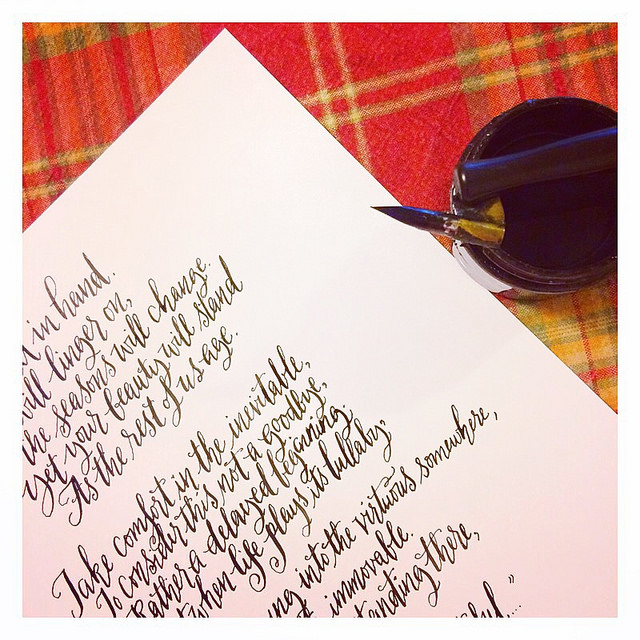 in hand.
will linger on,
the seasons will change.
yet your beauty will stand
As the rest of us age.
Take comfort in the inevitable,
To consider this not a goodbye,
Rather a delayed beginning.
When life plays its lullaby,
into the virtuous somewhere,
immovable.
there,